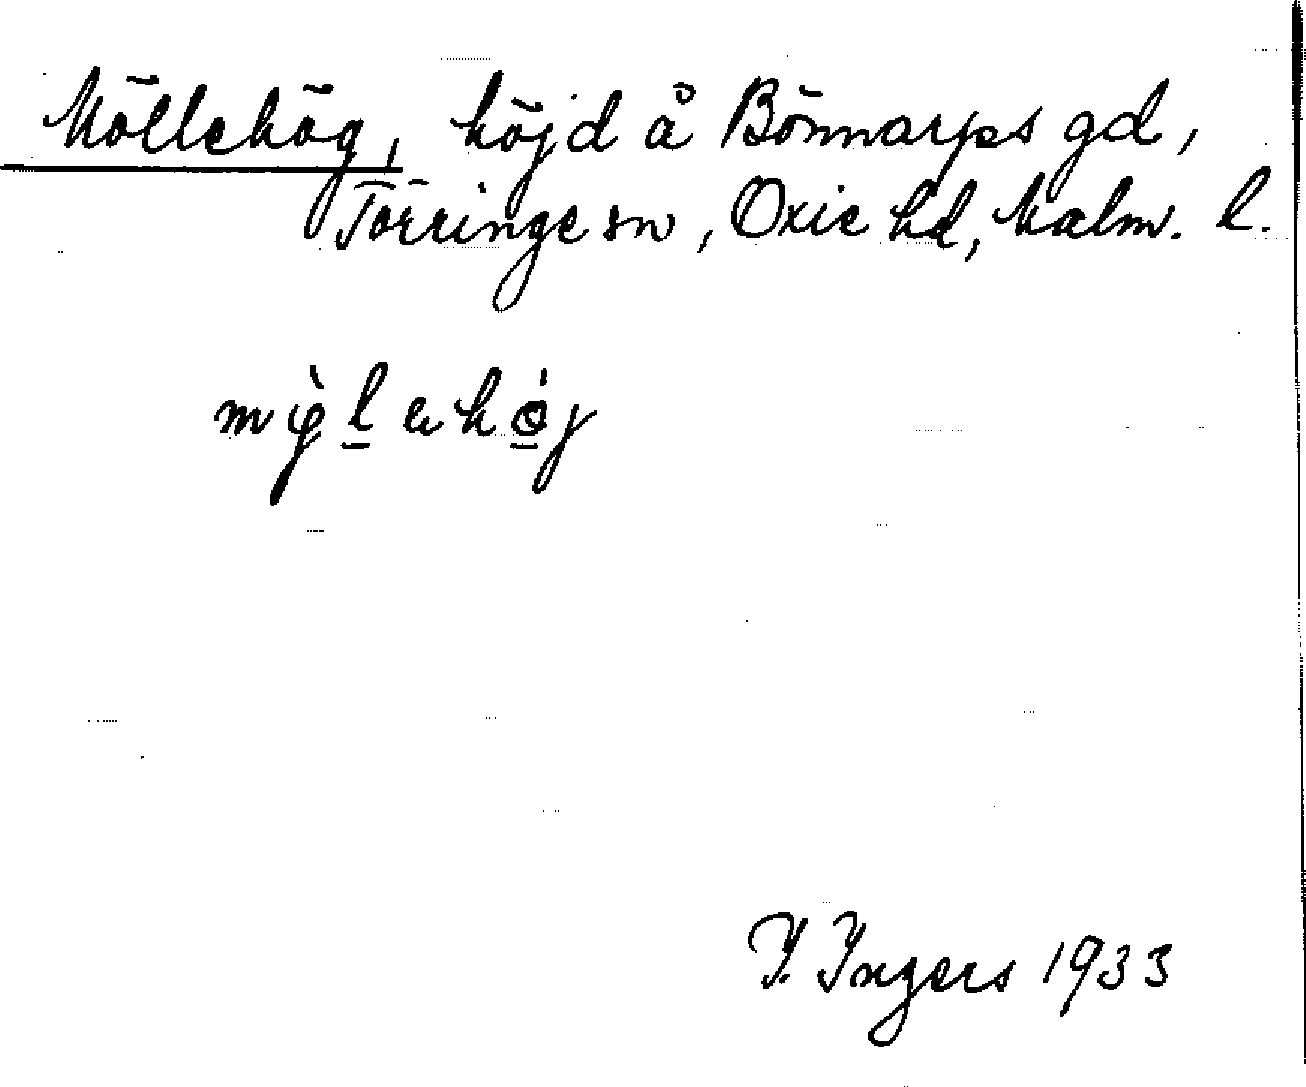 Möllehög, höjd å Bönnarps gd,
Törringe sn, Oxie hd, Malm. l.
I. Ingers 1933